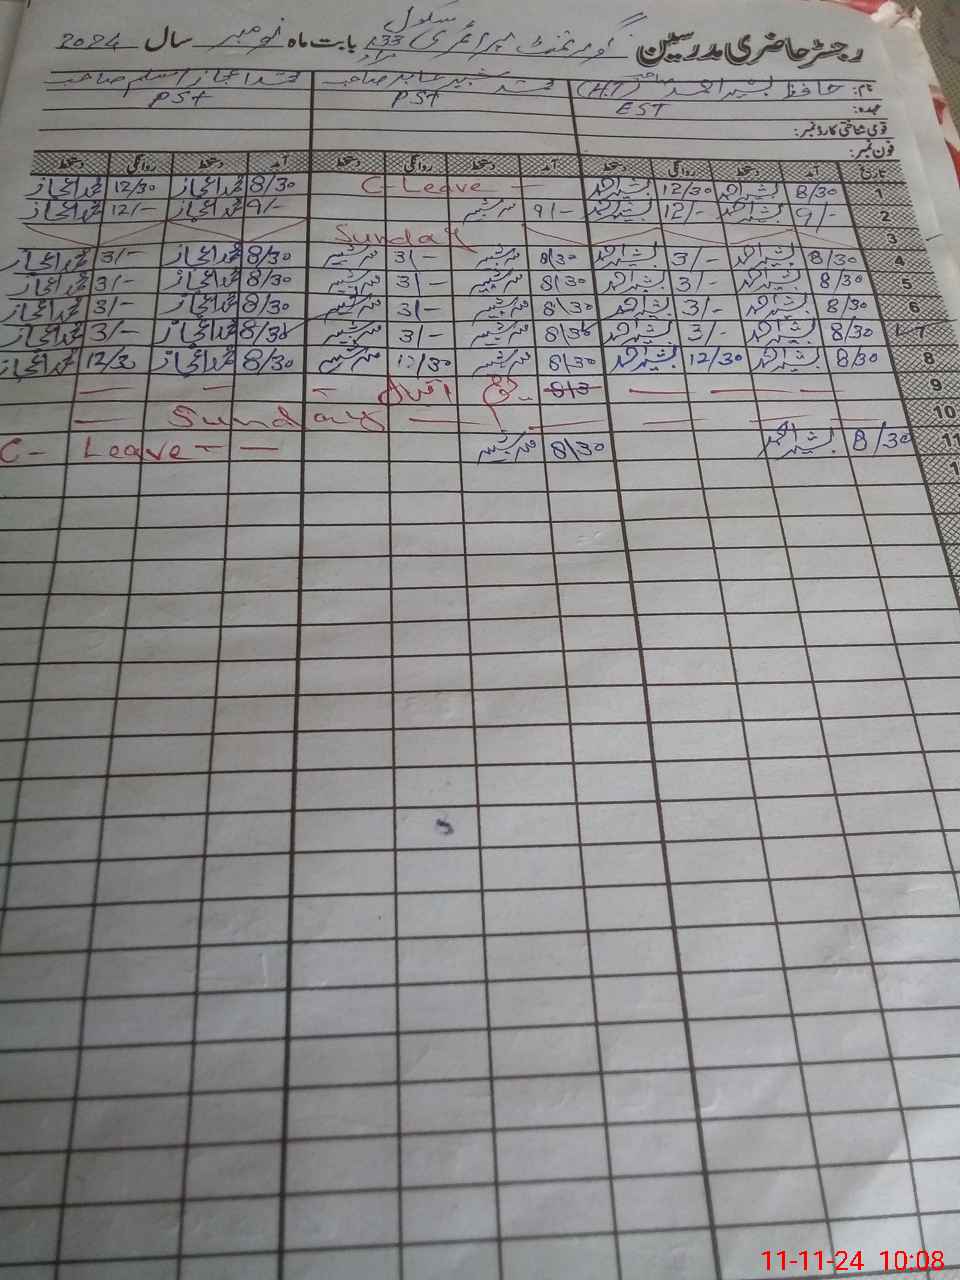 رجسٹر حاضری مدرسین گورنمنٹ پرائمری سکول 133 بابت ماہ نومبر سال 2024
نام: حافظ بشیر احمد صاحب (H.T) محمد شبیر صابر صاحب محمد اعجاز اسلم صاحب
عہدہ: EST PST PST
قومی شناختی کارڈ نمبر:
فون نمبر:
تاریخ آمد دستخط روانگی دستخط آمد دستخط روانگی دستخط آمد دستخط روانگی دستخط
1 8/30 بشیر احمد 12/30 بشیر احمد C-Leave - 8/30 محمد اعجاز 12/30 محمد اعجاز
2 9/- بشیر احمد 12/- بشیر احمد 9/- محمد شبیر 9/- محمد اعجاز 12/- محمد اعجاز
3 Sunday
4 8/30 بشیر احمد 3/- بشیر احمد 8/30 محمد شبیر 3/- محمد شبیر 8/30 محمد اعجاز 3/- محمد اعجاز
5 8/30 بشیر احمد 3/- بشیر احمد 8/30 محمد شبیر 3/- محمد شبیر 8/30 محمد اعجاز 3/- محمد اعجاز
6 8/30 بشیر احمد 3/- بشیر احمد 8/30 محمد شبیر 3/- محمد شبیر 8/30 محمد اعجاز 3/- محمد اعجاز
7 8/30 بشیر احمد 3/- بشیر احمد 8/30 محمد شبیر 3/- محمد شبیر 8/30 محمد اعجاز 3/- محمد اعجاز
8 8/30 بشیر احمد 12/30 بشیر احمد 8/30 محمد شبیر 12/30 محمد شبیر 8/30 محمد اعجاز 12/30 محمد اعجاز
9
10 Sunday
11 8/30 بشیر احمد 8/30 محمد شبیر C- Leave - -
11-11-24 10:08